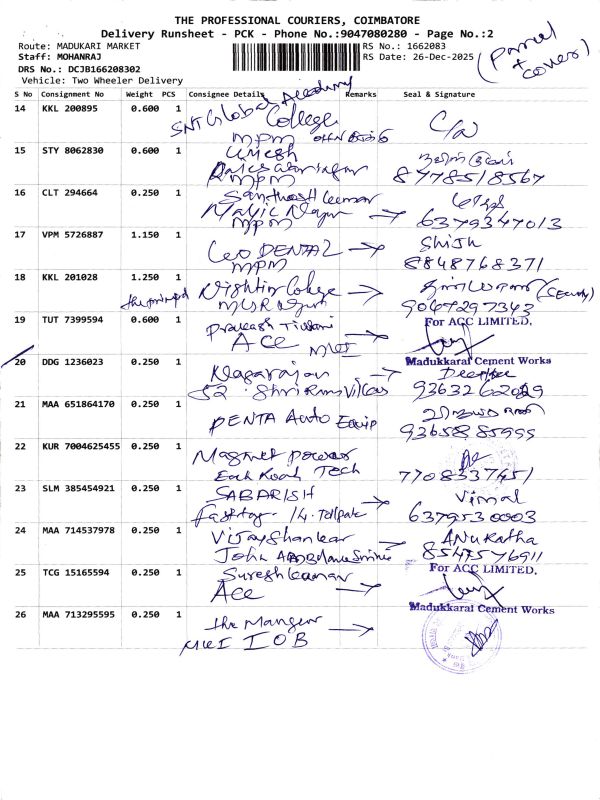 THE PROFESSIONAL COURIERS, COIMBATORE
Delivery Runsheet - PCK - Phone No.:9047080280 - Page No.:2
Route: MADUKARI MARKET RS No.: 1662083
Staff: MOHANRAJ RS Date: 26-Dec-2025
DRS No.: DCJB166208302
Vehicle: Two Wheeler Delivery
(Parcel + cover)
S No Consignment No Weight PCS Consignee Details Remarks Seal & Signature
14 KKL 200895 0.600 1 SNT Global Academy
College
MPM
15 STY 8062830 0.600 1 Umesh
MPM 8778518567
16 CLT 294664 0.250 1 Santhosh Kumar
MPM → 6379347013
17 VPM 5726887 1.150 1 Leo DENTAL → Shijh
MPM 8848768371
18 KKL 201028 1.250 1 the principal Nightin College → (Security)
19 TUT 7399594 0.600 1 Prakash →
ACC For ACC LIMITED.
Madukkarai Cement Works
20 DDG 1236023 0.250 1 Nagarajan → Deepke
52. Shri Ram Villas
21 MAA 651864170 0.250 1 PENTA Auto Equip
9365885995
22 KUR 7004625455 0.250 1 Magnet power
Tech 7708337451
23 SLM 385454921 0.250 1 SABARISH → Vimal
Fasttag 14. Tollgate 6379530003
24 MAA 714537978 0.250 1 Vijayshankar → ANuRatha
John 8547576911
25 TCG 15165594 0.250 1 Sureshkumar
ACC → For ACC LIMITED.
Madukkarai Cement Works
26 MAA 713295595 0.250 1 the Manger →
IOB